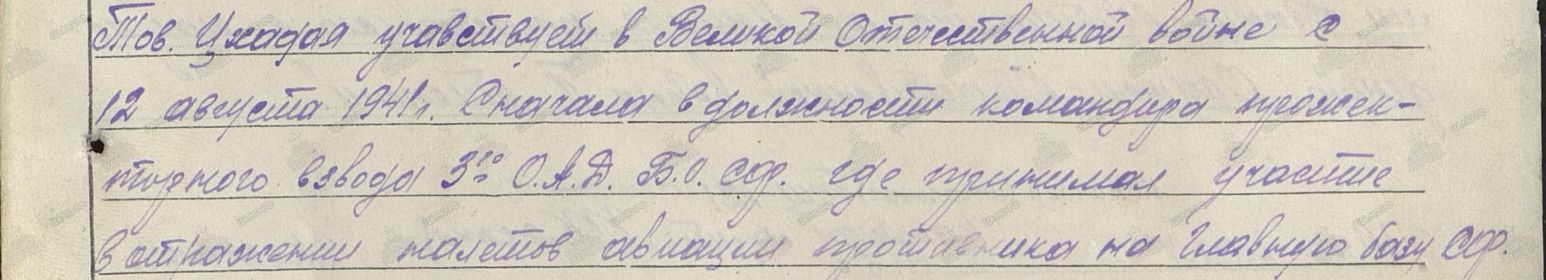 Тов. Цхадая учавствует в Великой Отечественной войне с
12 августа 1941 г. Сначала в должности командира прожек-
торного взвода 3го О.А.Д. Б.О. СФ. где принимал участие
в отражении налетов авиации противника на Главную базу СФ.